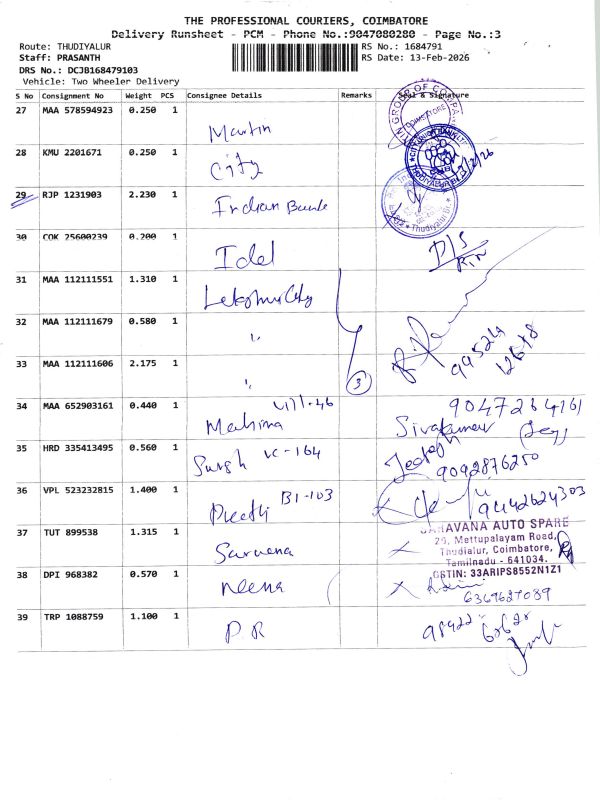 THE PROFESSIONAL COURIERS, COIMBATORE
Delivery Runsheet - PCM - Phone No.:9047080280 - Page No.:3
Route: THUDIYALUR
RS No.: 1684791
Staff: PRASANTH
RS Date: 13-Feb-2026
DRS No.: DCJB168479103
Vehicle: Two Wheeler Delivery
S No Consignment No Weight PCS Consignee Details Remarks Seal & Signature
27 MAA 578594923 0.250 1 Martin
28 KMU 2201671 0.250 1 City
29 RJP 1231903 2.230 1 Indian Bank
30 COK 25600239 0.200 1 Idel
31 MAA 112111551 1.310 1
32 MAA 112111679 0.580 1 "
33 MAA 112111606 2.175 1 " 3
34 MAA 652903161 0.440 1 Mahima
Sivakumar
35 HRD 335413495 0.560 1 VC-164
9092876250
36 VPL 523232815 1.400 1 Preethi B1-103
9442624303
37 TUT 899538 1.315 1 Sarvena
SARAVANA AUTO SPARE
25, Mettupalayam Road,
Thudialur, Coimbatore,
Tamilnadu - 641034.
GSTIN: 33ARIPS8552N1Z1
38 DPI 968382 0.570 1 Neena
6369627089
39 TRP 1088759 1.100 1 P R